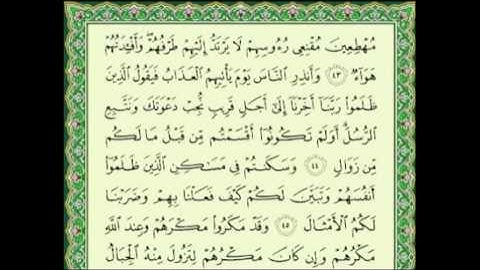 مُهۡطِعِينَ مُقۡنِعِي رُءُوسِهِمۡ لَا يَرۡتَدُّ إِلَيۡهِمۡ طَرۡفُهُمۡۖ وَأَفۡـِٔدَتُهُمۡ
هَوَآءٞ ٤٣ وَأَنذِرِ ٱلنَّاسَ يَوۡمَ يَأۡتِيهِمُ ٱلۡعَذَابُ فَيَقُولُ ٱلَّذِينَ
ظَلَمُواْ رَبَّنَآ أَخِّرۡنَآ إِلَىٰٓ أَجَلٖ قَرِيبٖ نُّجِبۡ دَعۡوَتَكَ وَنَتَّبِعِ
ٱلرُّسُلَۗ أَوَلَمۡ تَكُونُوٓاْ أَقۡسَمۡتُم مِّن قَبۡلُ مَا لَكُم
مِّن زَوَالٖ ٤٤ وَسَكَنتُمۡ فِي مَسَٰكِنِ ٱلَّذِينَ ظَلَمُوٓاْ
أَنفُسَهُمۡ وَتَبَيَّنَ لَكُمۡ كَيۡفَ فَعَلۡنَا بِهِمۡ وَضَرَبۡنَا
لَكُمُ ٱلۡأَمۡثَالَ ٤٥ وَقَدۡ مَكَرُواْ مَكۡرَهُمۡ وَعِندَ ٱللَّهِ
مَكۡرُهُمۡ وَإِن كَانَ مَكۡرُهُمۡ لِتَزُولَ مِنۡهُ ٱلۡجِبَالُ